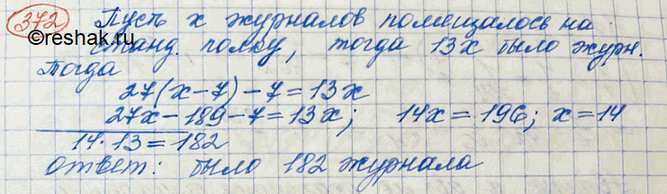 372 Пусть x журналов помещалось на
©reshak.ru станд. полку, тогда 13x было журн.
Тогда
27(x-7)-7=13x
27x-189-7=13x; 14x=196; x=14
14·13=182
Ответ: было 182 журнала